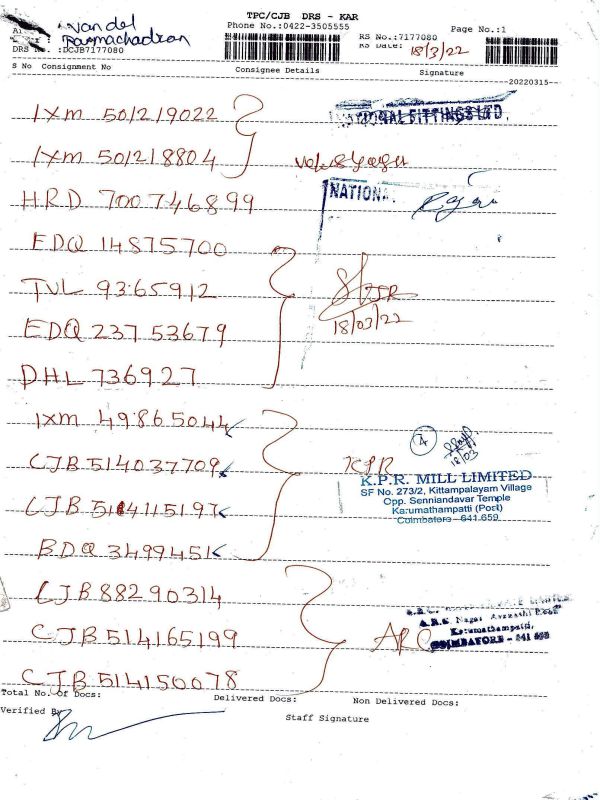 TPC/CJB DRS - KAR
Phone No.:0422-3505555
Page No.:1
RS No.:7177080
No. :DCJB7177080
RS Date: 18/3/22
S No Consignment No Consignee Details Signature
20220315
IXM 501219022
IXM 501218804
HRD 700746899
EDQ 14875700
TVL 9365912
EDQ 23753679
DHL 736927
NATIONAL FITTINGS LTD.
NATIONA
18/03/22
IXM 49865044
CJB 514037709
CJB 514115197
BDQ 3499451
4
18/03
KPR
K.P.R. MILL LIMITED
SF No. 273/2, Kittampalayam Village
Opp. Senniandavar Temple
Karumathampatti (Post)
Coimbatore - 641 659.
CJB 88290314
CJB 514165199
CJB 514150078
ARC
A.R.C. Nagar Avinashi Road
Karumathampatti,
COIMBATORE - 641 659
Total No. of Docs: Delivered Docs: Non Delivered Docs:
Verified By
Staff Signature